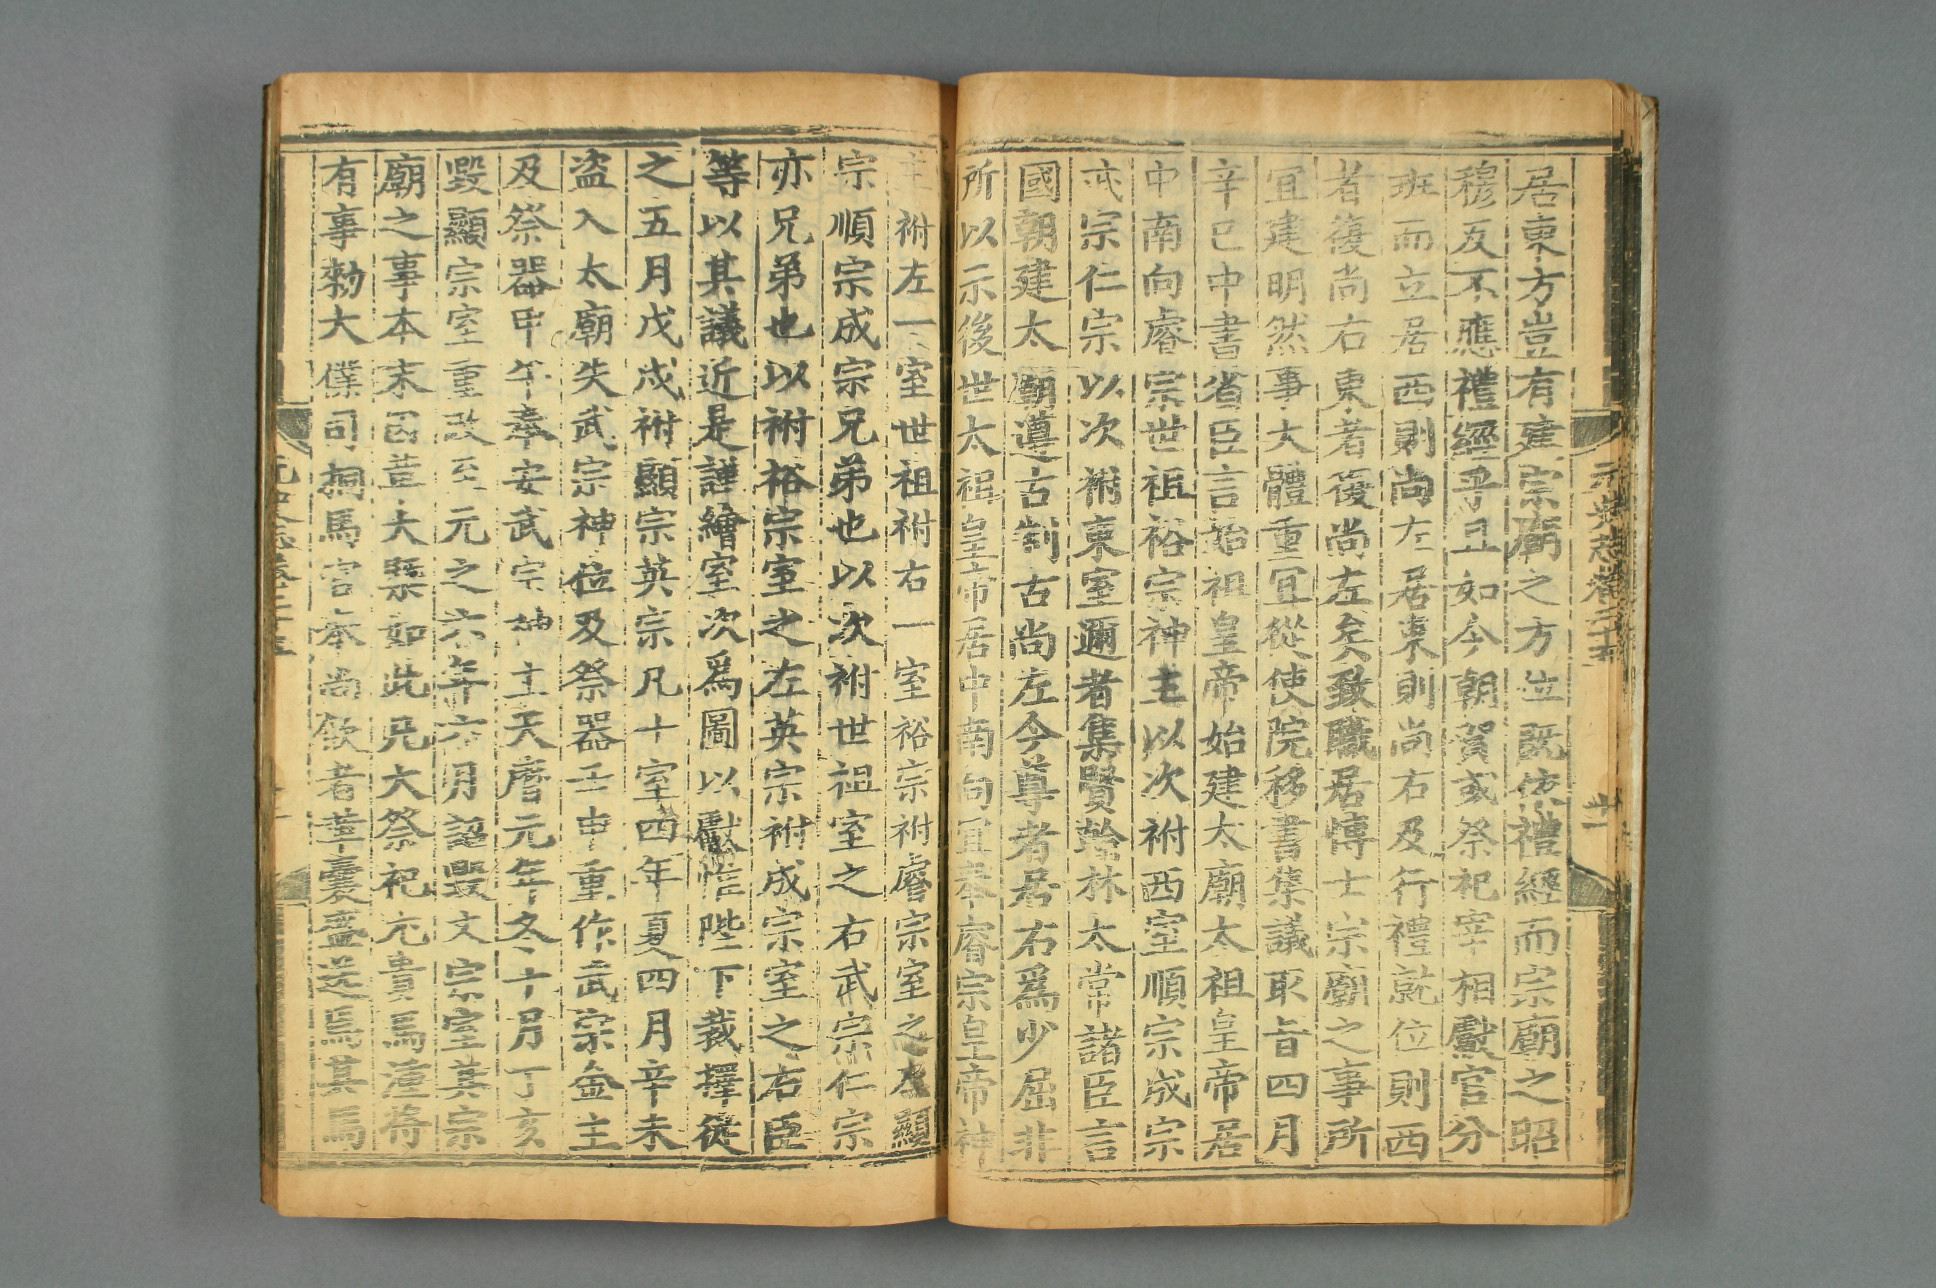 居東方豈有建宗廟之方位既倣禮經而宗廟之昭
穆反不應禮經乎且如今朝賀或祭祀宰相獻官分
班而立居西則尚左居東則尚右及行禮就位則西
者復尚右東者復尚左矣致職居博士宗廟之事所
宜建明然事大體重宜從使院移書集議取旨四月
辛巳中書省臣言始祖皇帝始建太廟太祖皇帝居
中南向睿宗世祖裕宗神主以次祔西室順宗成宗
武宗仁宗以次祔東室邇者集賢翰林太常諸臣言
國朝建太廟遵古制古尚左今尊者居右爲少屈非
所以示後世太祖皇帝居中南向宜奉睿宗皇帝神
主祔左一室世祖祔右一室裕宗祔睿宗室之左顯
宗順宗成宗兄弟也以次祔世祖室之右武宗仁宗
亦兄弟也以祔裕宗室之左英宗祔成宗室之右臣
等以其議近是謹繪室次爲圖以獻惟陛下裁擇從
之五月戊戌祔顯宗英宗凡十室四年夏四月辛未
盜入太廟失武宗神位及祭器壬申重作武宗金主
及祭器甲午奉安武宗神主天曆元年冬十月丁亥
毀顯宗室重改至元之六年六月詔毀文宗室其宗
廟之事本末因革大槩如此凡大祭祀尤貴馬湩將
有事勑大僕司挏馬官奉尚飲者革囊盛送焉其馬
元史志卷二十五